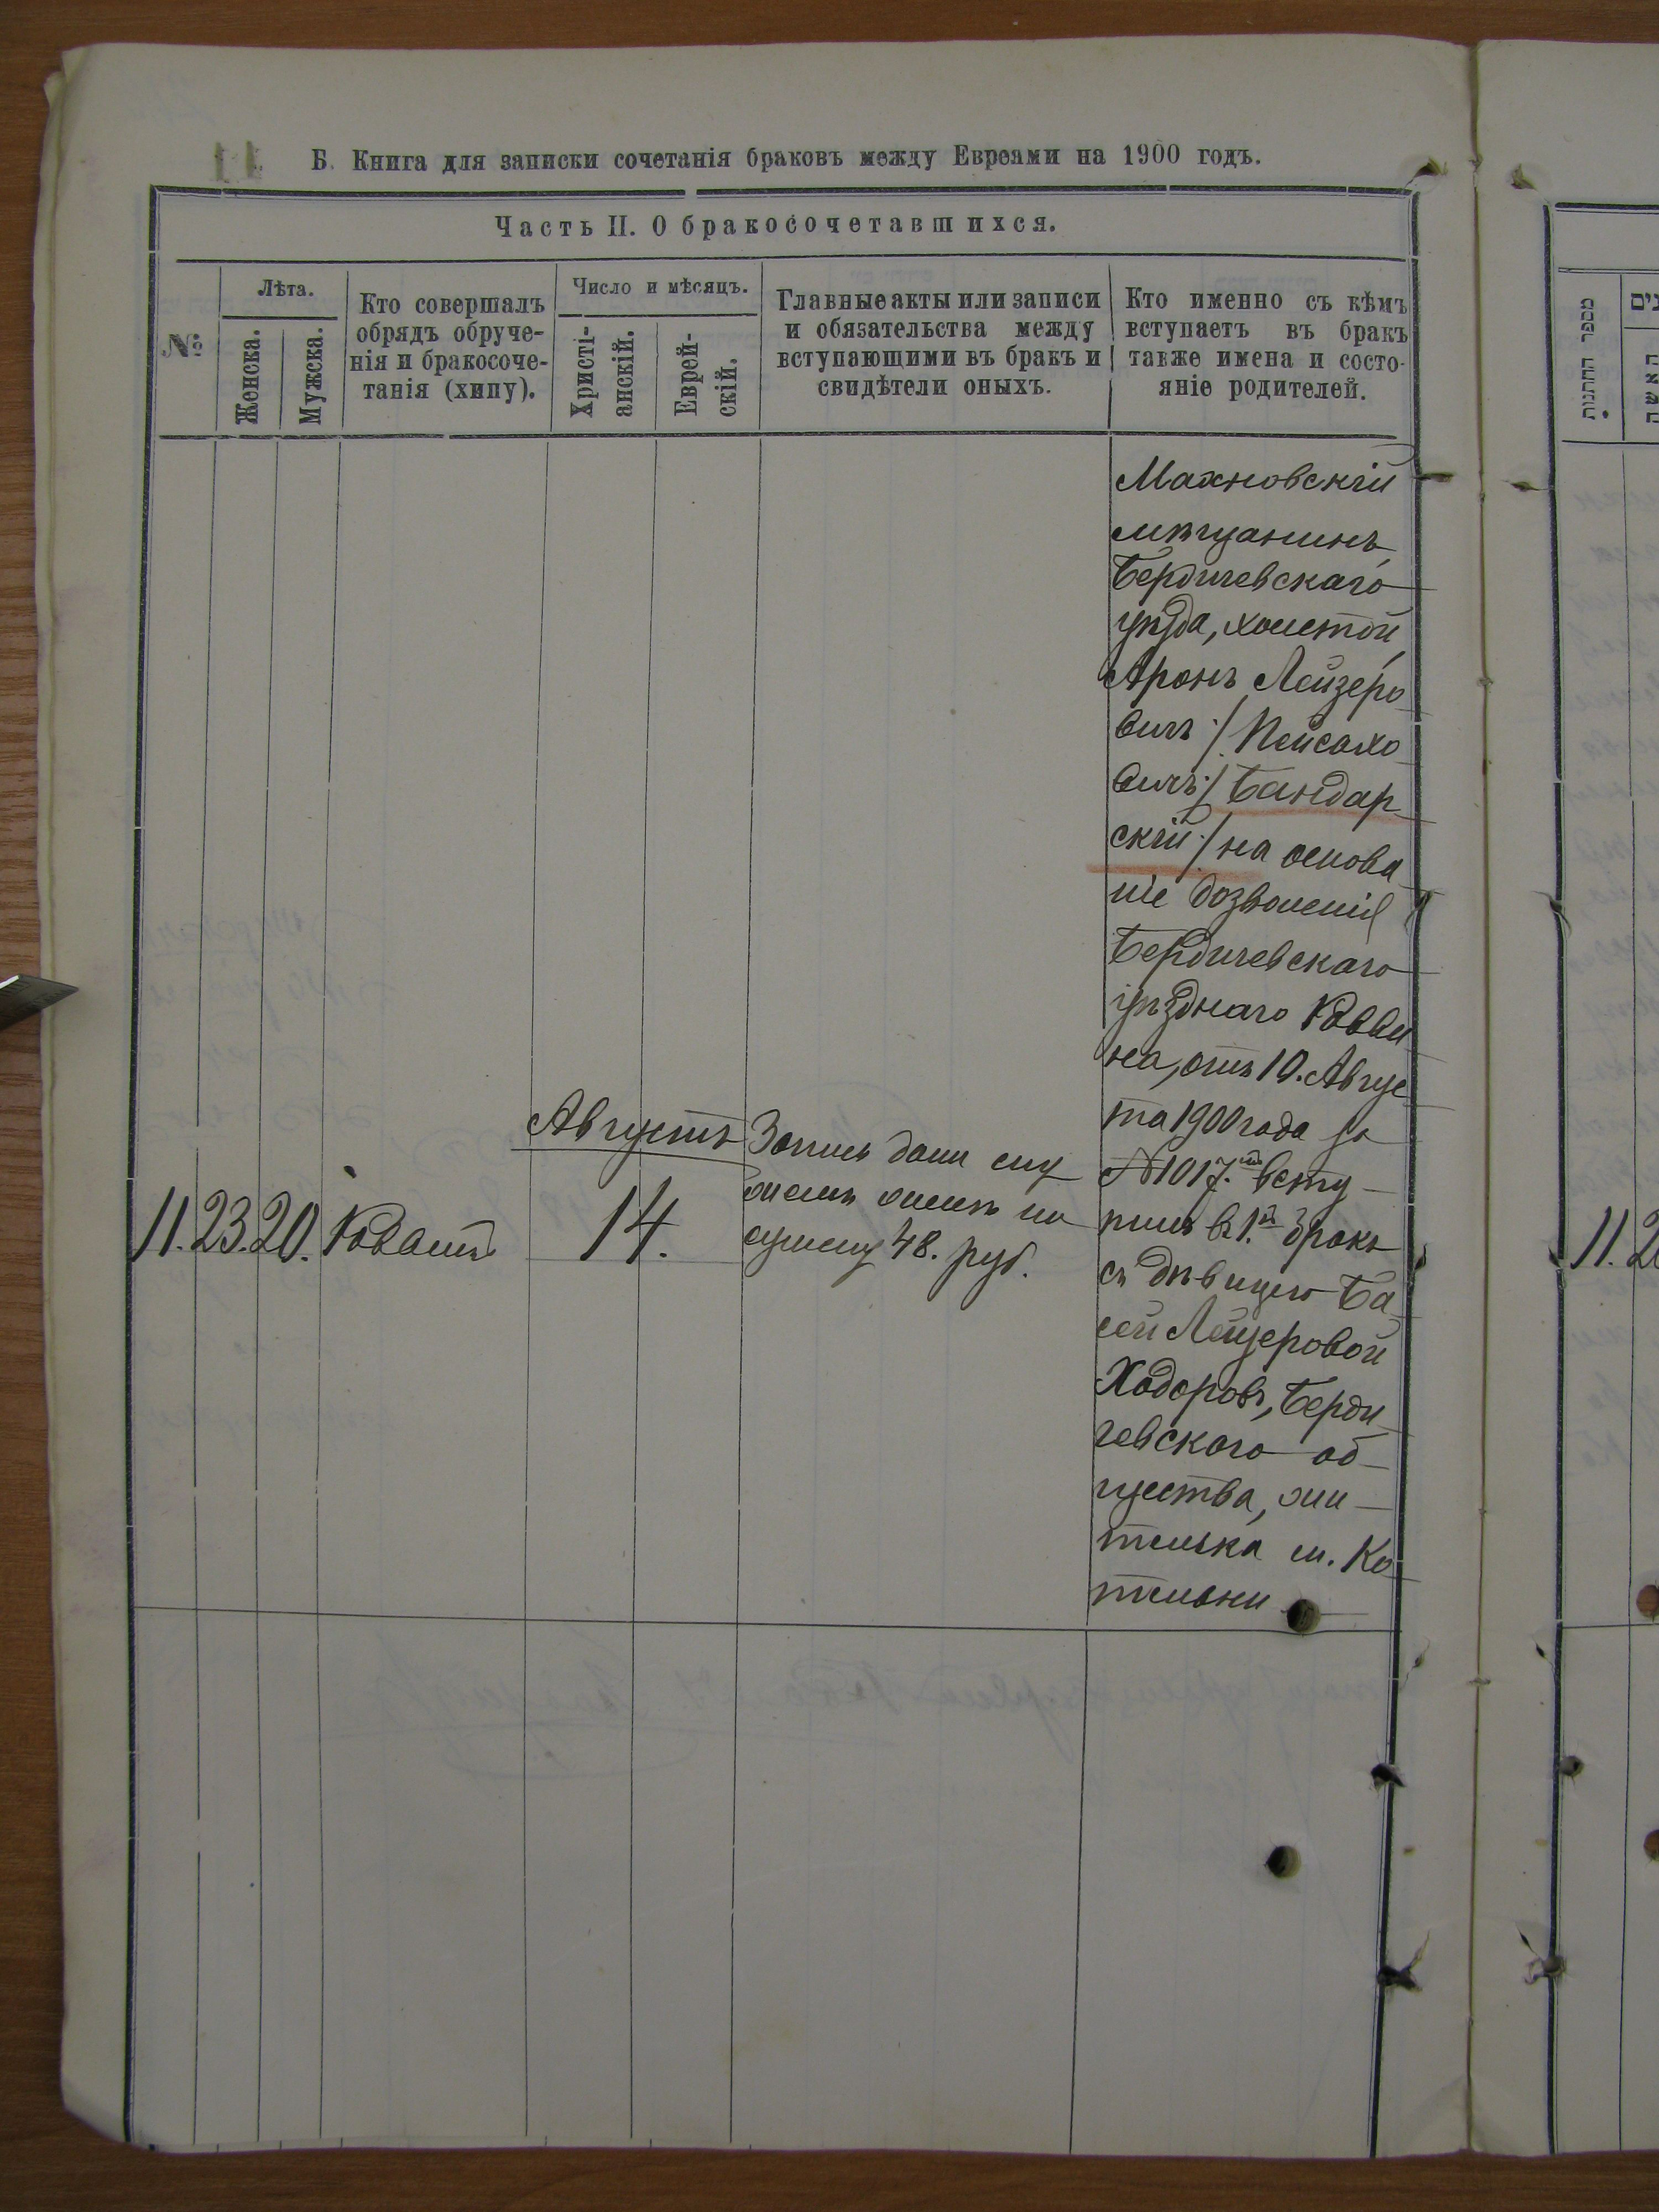 Б. Книга для записки сочетанія браковъ между Евреями на 1900 годъ.
Часть II. О бракосочетавшихся.
№
Лѣта.
Женска.
Мужска.
Кто совершалъ
обрядъ обруче-
нія и бракосоче-
танія (хипу).
Число и мѣсяцъ.
Христі-
анскій.
Еврей-
скій.
Главные акты или записи
и обязательства между
вступающими въ бракъ и
свидѣтели оныхъ.
Кто именно съ кѣмъ
вступаетъ въ бракъ
также имена и состо-
яніе родителей.
11. 23. 20.
Августъ
14.
Запись дана
на
сумму 48. руб.
Махновскій
мѣщанинъ
Бердичевскаго
уѣзда, холостой
Аронъ Лейзеро
вичъ /: Пейсахо
вичъ :/ Бандар
скій :/ на основа
ніе дозволенія
Бердичевскаго
уѣзднаго Равви
на, отъ 10. Авгус
та 1900 года за
№ 1017. всту-
пилъ въ 1.й бракъ
съ дѣвицею Ба
сей Лейзеровой
Ходоровъ, Берди
чевскаго об-
щества, жи-
телька м. Ко
тельни
מספר החתונות
האשה
11. 2